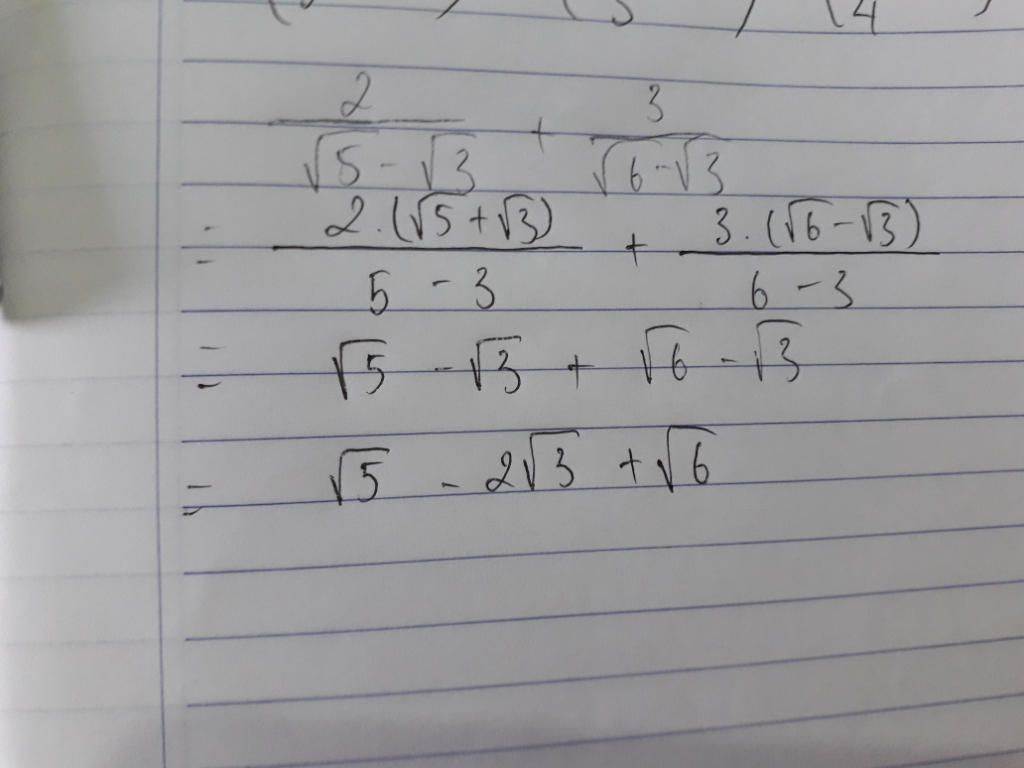 2/(√5 - √3) + 3/(√6 - √3)
= 2.(√5 + √3)/(5 - 3) + 3.(√6 - √3)/(6 - 3)
= √5 - √3 + √6 - √3
= √5 - 2√3 + √6